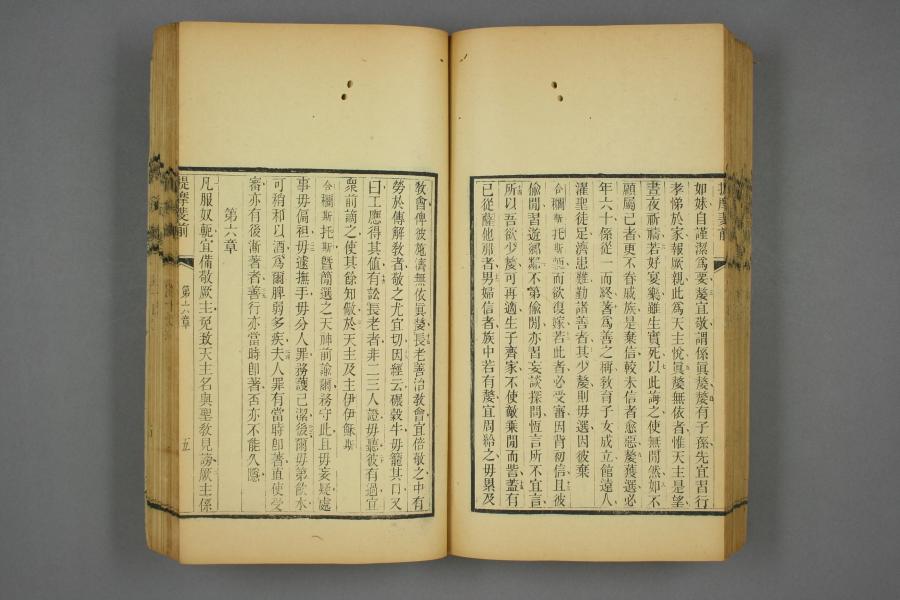 如妹自謹潔爲要嫠宜敬謂係眞嫠嫠有子孫先宜習行
孝悌於家報厥親此爲天主悅眞嫠無依者惟天主是望
晝夜祈禱若好宴樂雖生實死以此誨之使無閒然如不
顧屬己者更不眷戚族是棄信較未信者愈惡嫠獲選必
年六十係從一而終著爲善之稱教育子女成立館遠人
濯聖徒足濟患難勤諸善者其少嫠則毋選因彼棄
合襧斯托斯 而欲復嫁若此者必受審因背初信且彼
偷閒習遊鄉鄰不第偷閒亦習妄談探問恆言所不宜言
所以吾欲少嫠可再適生子齊家不使敵乘閒而訾蓋有
已從薩他那者男婦信者族中若有嫠宜周給之毋累及
教會俾彼施濟無依眞嫠長老善治教會宜倍敬之中有
勞於傳解教者敬之尤宜切因經云碾穀牛毋籠其口又
曰工應得其值有訟長老者非二三人證毋聽彼有過宜
衆前謫之使其餘知儆於天主及主伊伊穌斯
合襧斯托斯曁簡選之天神前諭爾務守此且毋妄疑處
事毋偏袒毋遽撫手毋分人罪務護己潔後爾毋第飲水
可稍和以酒爲爾脾弱多疾夫人罪有當時卽著直使受
審亦有後漸著者善行亦當時卽著否亦不能久隱
第六章
凡服奴軛宜備敬厥主免致天主名與聖教見謗厥主係
提摩斐前
第六章
五